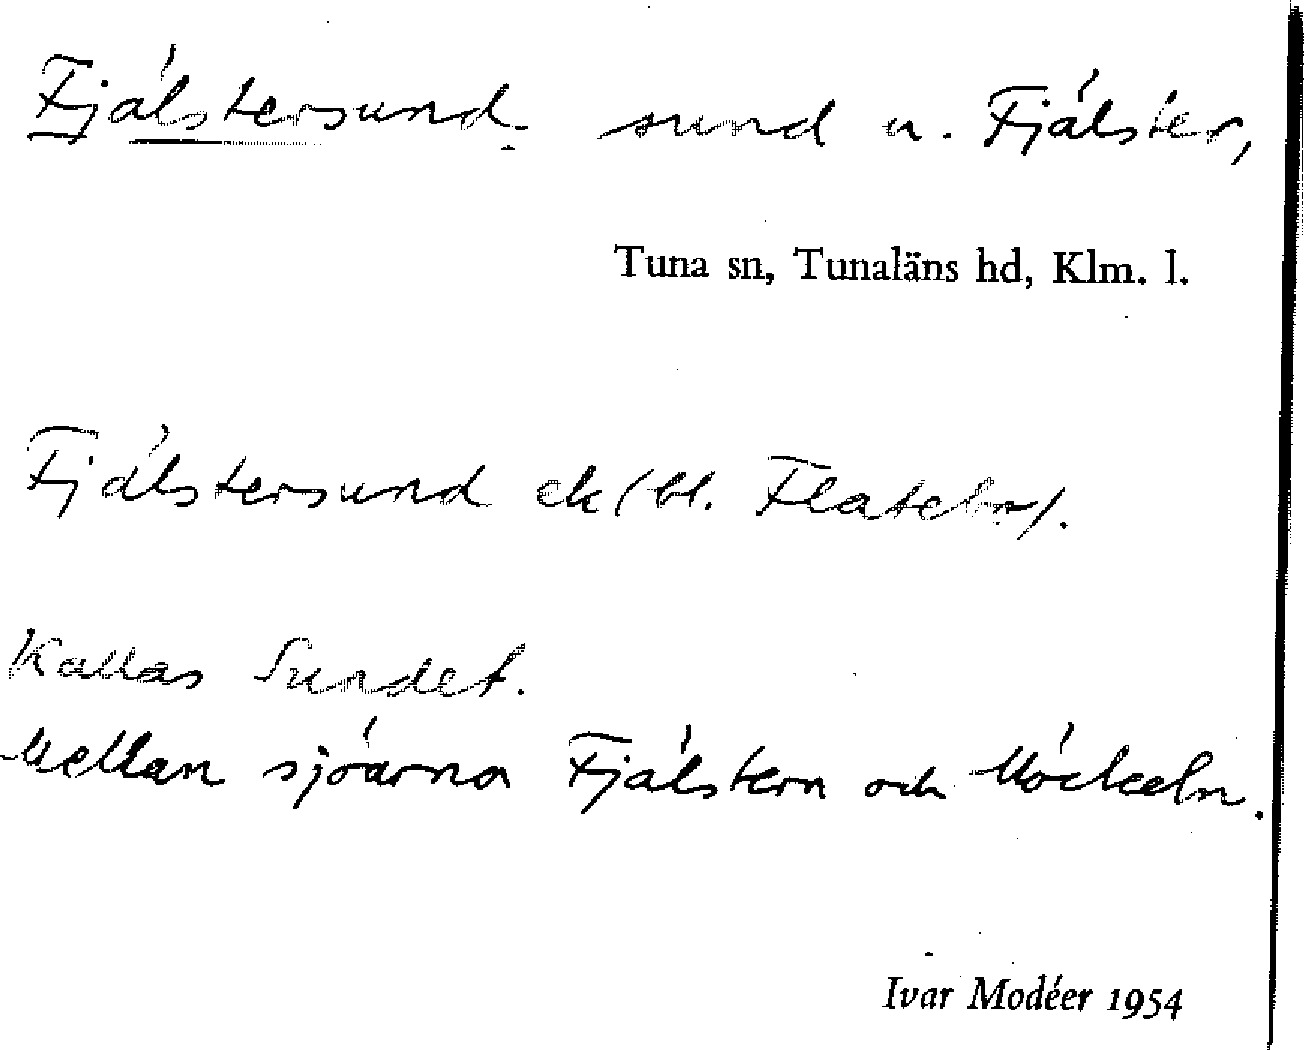 Fjälstersund. sund u. Fjälster,
Tuna sn, Tunaläns hd, Klm. l.
Fjälstersund ek (bl.
Kallas Sundet.
Mellan sjöarna Fjälstern och Möckeln.
Ivar Modéer 1954